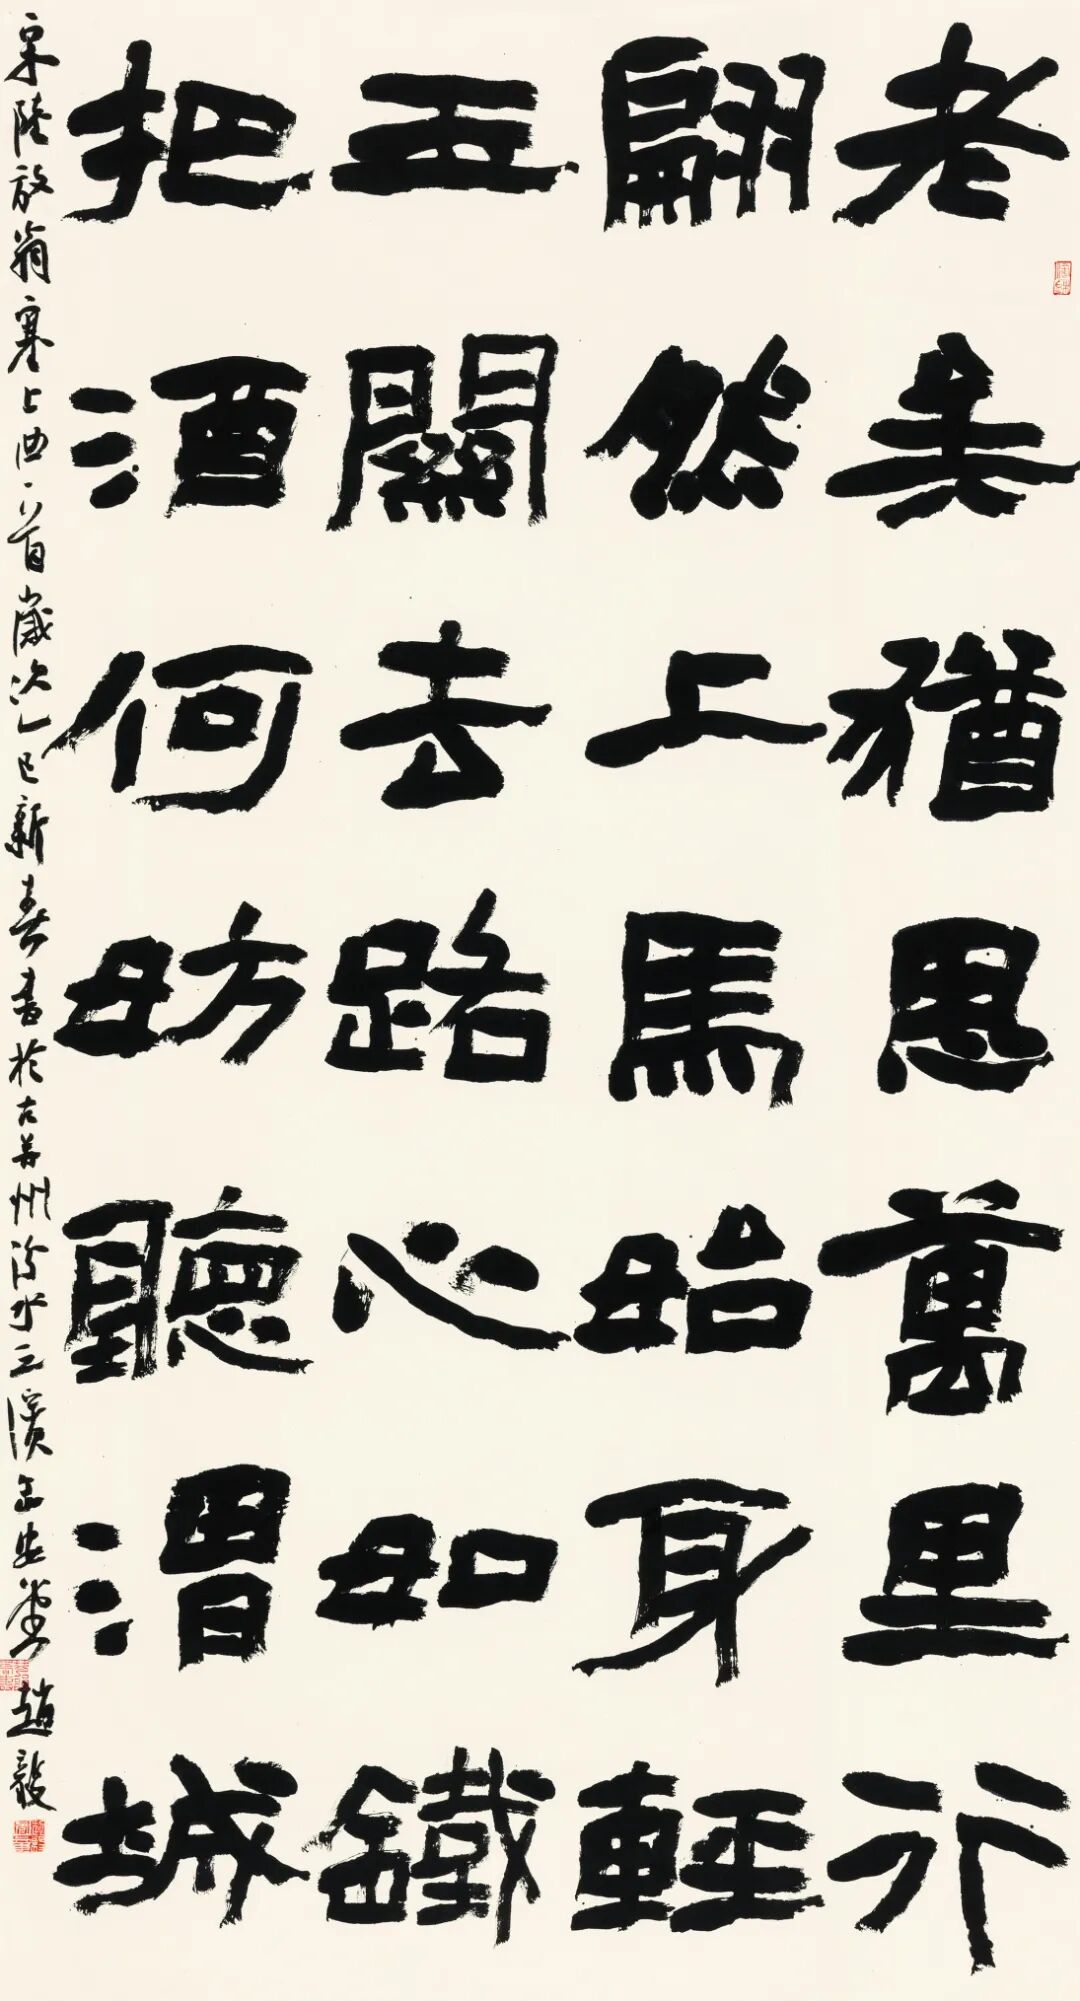 老矣猶思萬里行
翩然上馬始身輕
玉關去路心如鐵
把酒何妨聽渭城
宋陸放翁塞上曲一首歲次乙巳新春書於古并州汾水之濱堂趙毅